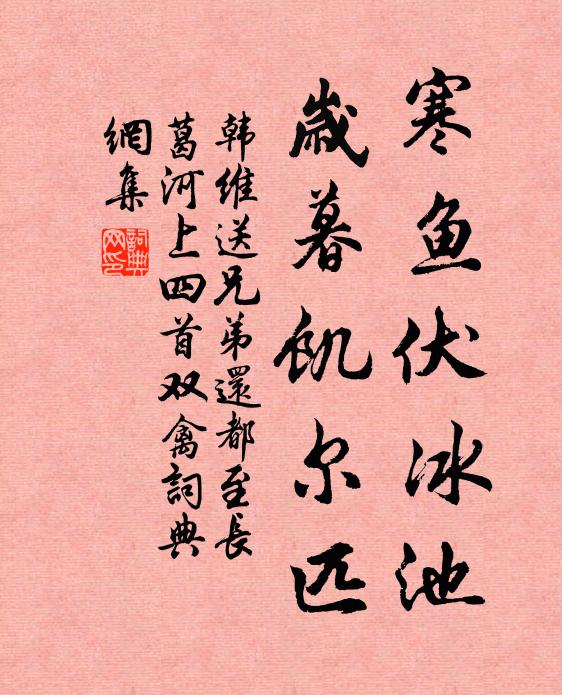 寒鱼伏冰池
歲暮飢尔匹
韩维送兄弟還都至長
葛河上四首双禽詞典
網集
詞典網印